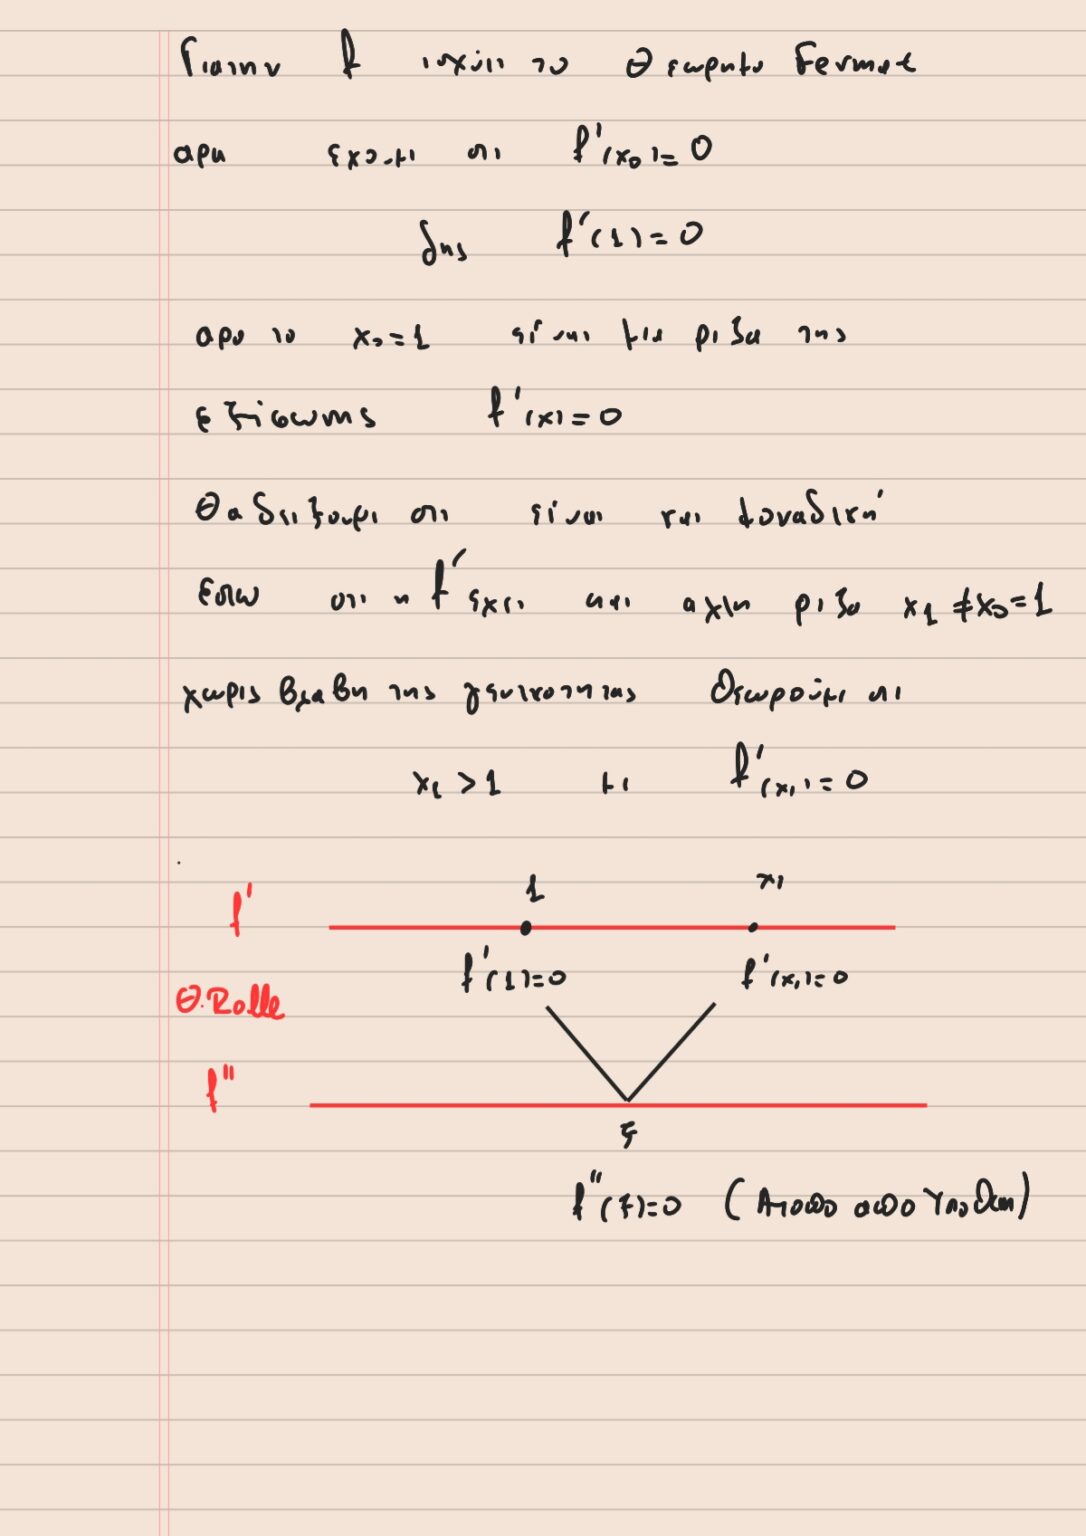 Για την f ισχύει το Θεωρημα Fermat
αρα εχουμε οτι f'(x₀)=0
δης f'(1)=0
αρα το x₀=1 είναι μια ριζα της
εξισωσης f'(x)=0
Θα δειξουμε οτι είναι και μοναδική
Εστω οτι η f' εχει και αλλη ριζα x₁≠x₀=1
χωρις βλαβη της γενικοτητας θεωρούμε οτι
x₁>1 με f'(x₁)=0
f' 1 x₁
f'(1)=0 f'(x₁)=0
Θ.Rolle
f''
ξ
f''(ξ)=0 (Ατοπο απο Υποθεση)